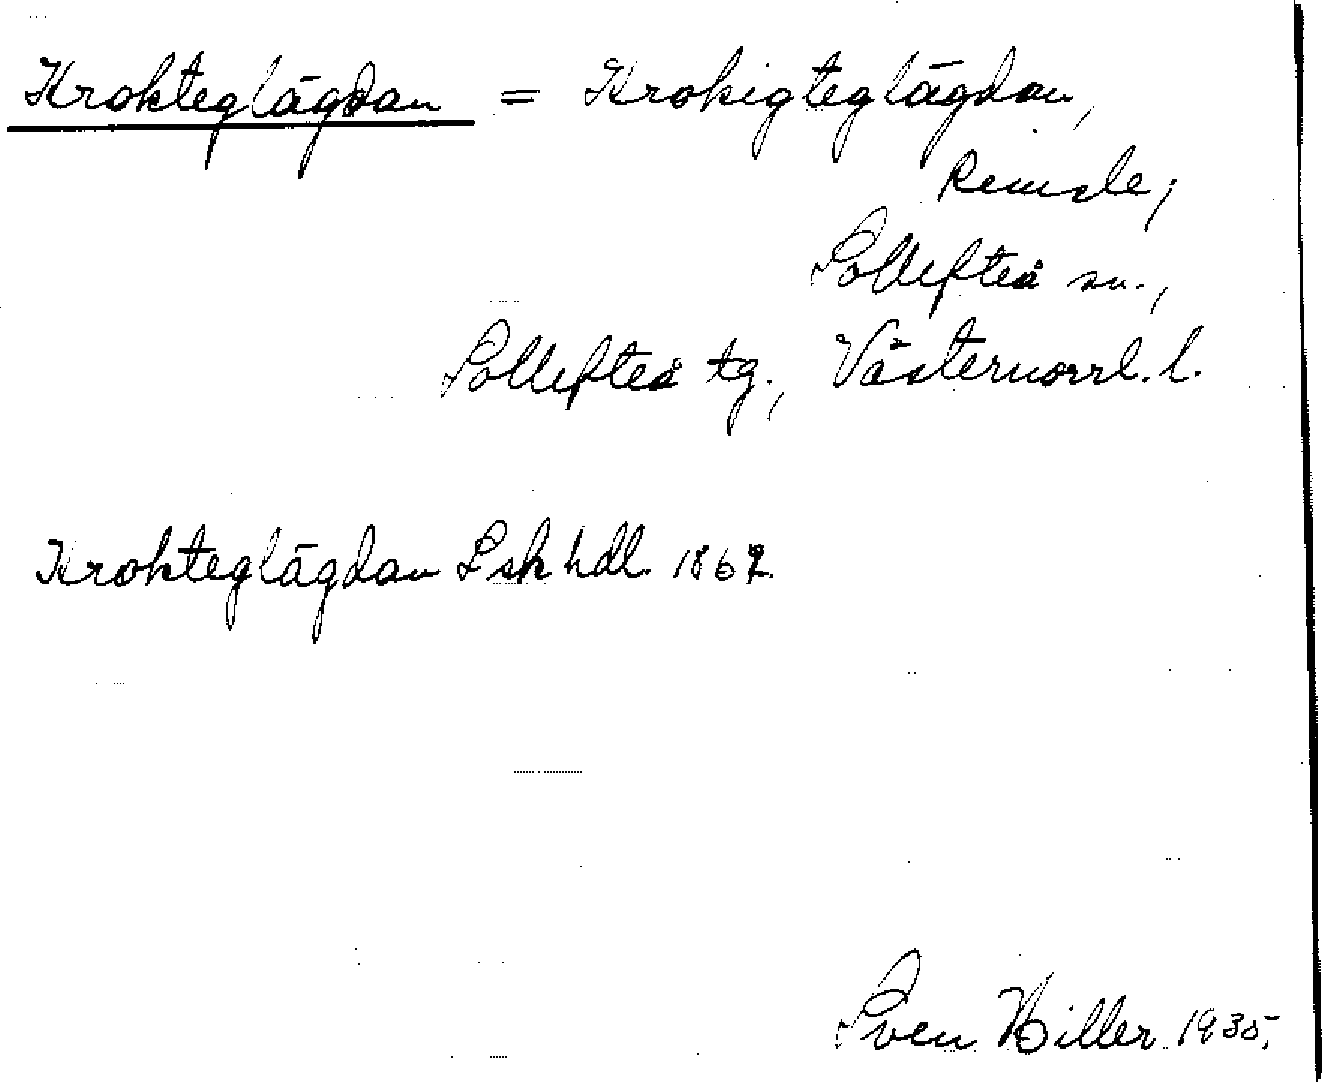 Krokteglägdan = Krokigteglägdan,
Remsle,
Sollefteå sn.,
Sollefteå tg., Västernorrl. l.
Krokteglägdan Lskhdl. 1867
Sven Hiller 1935.